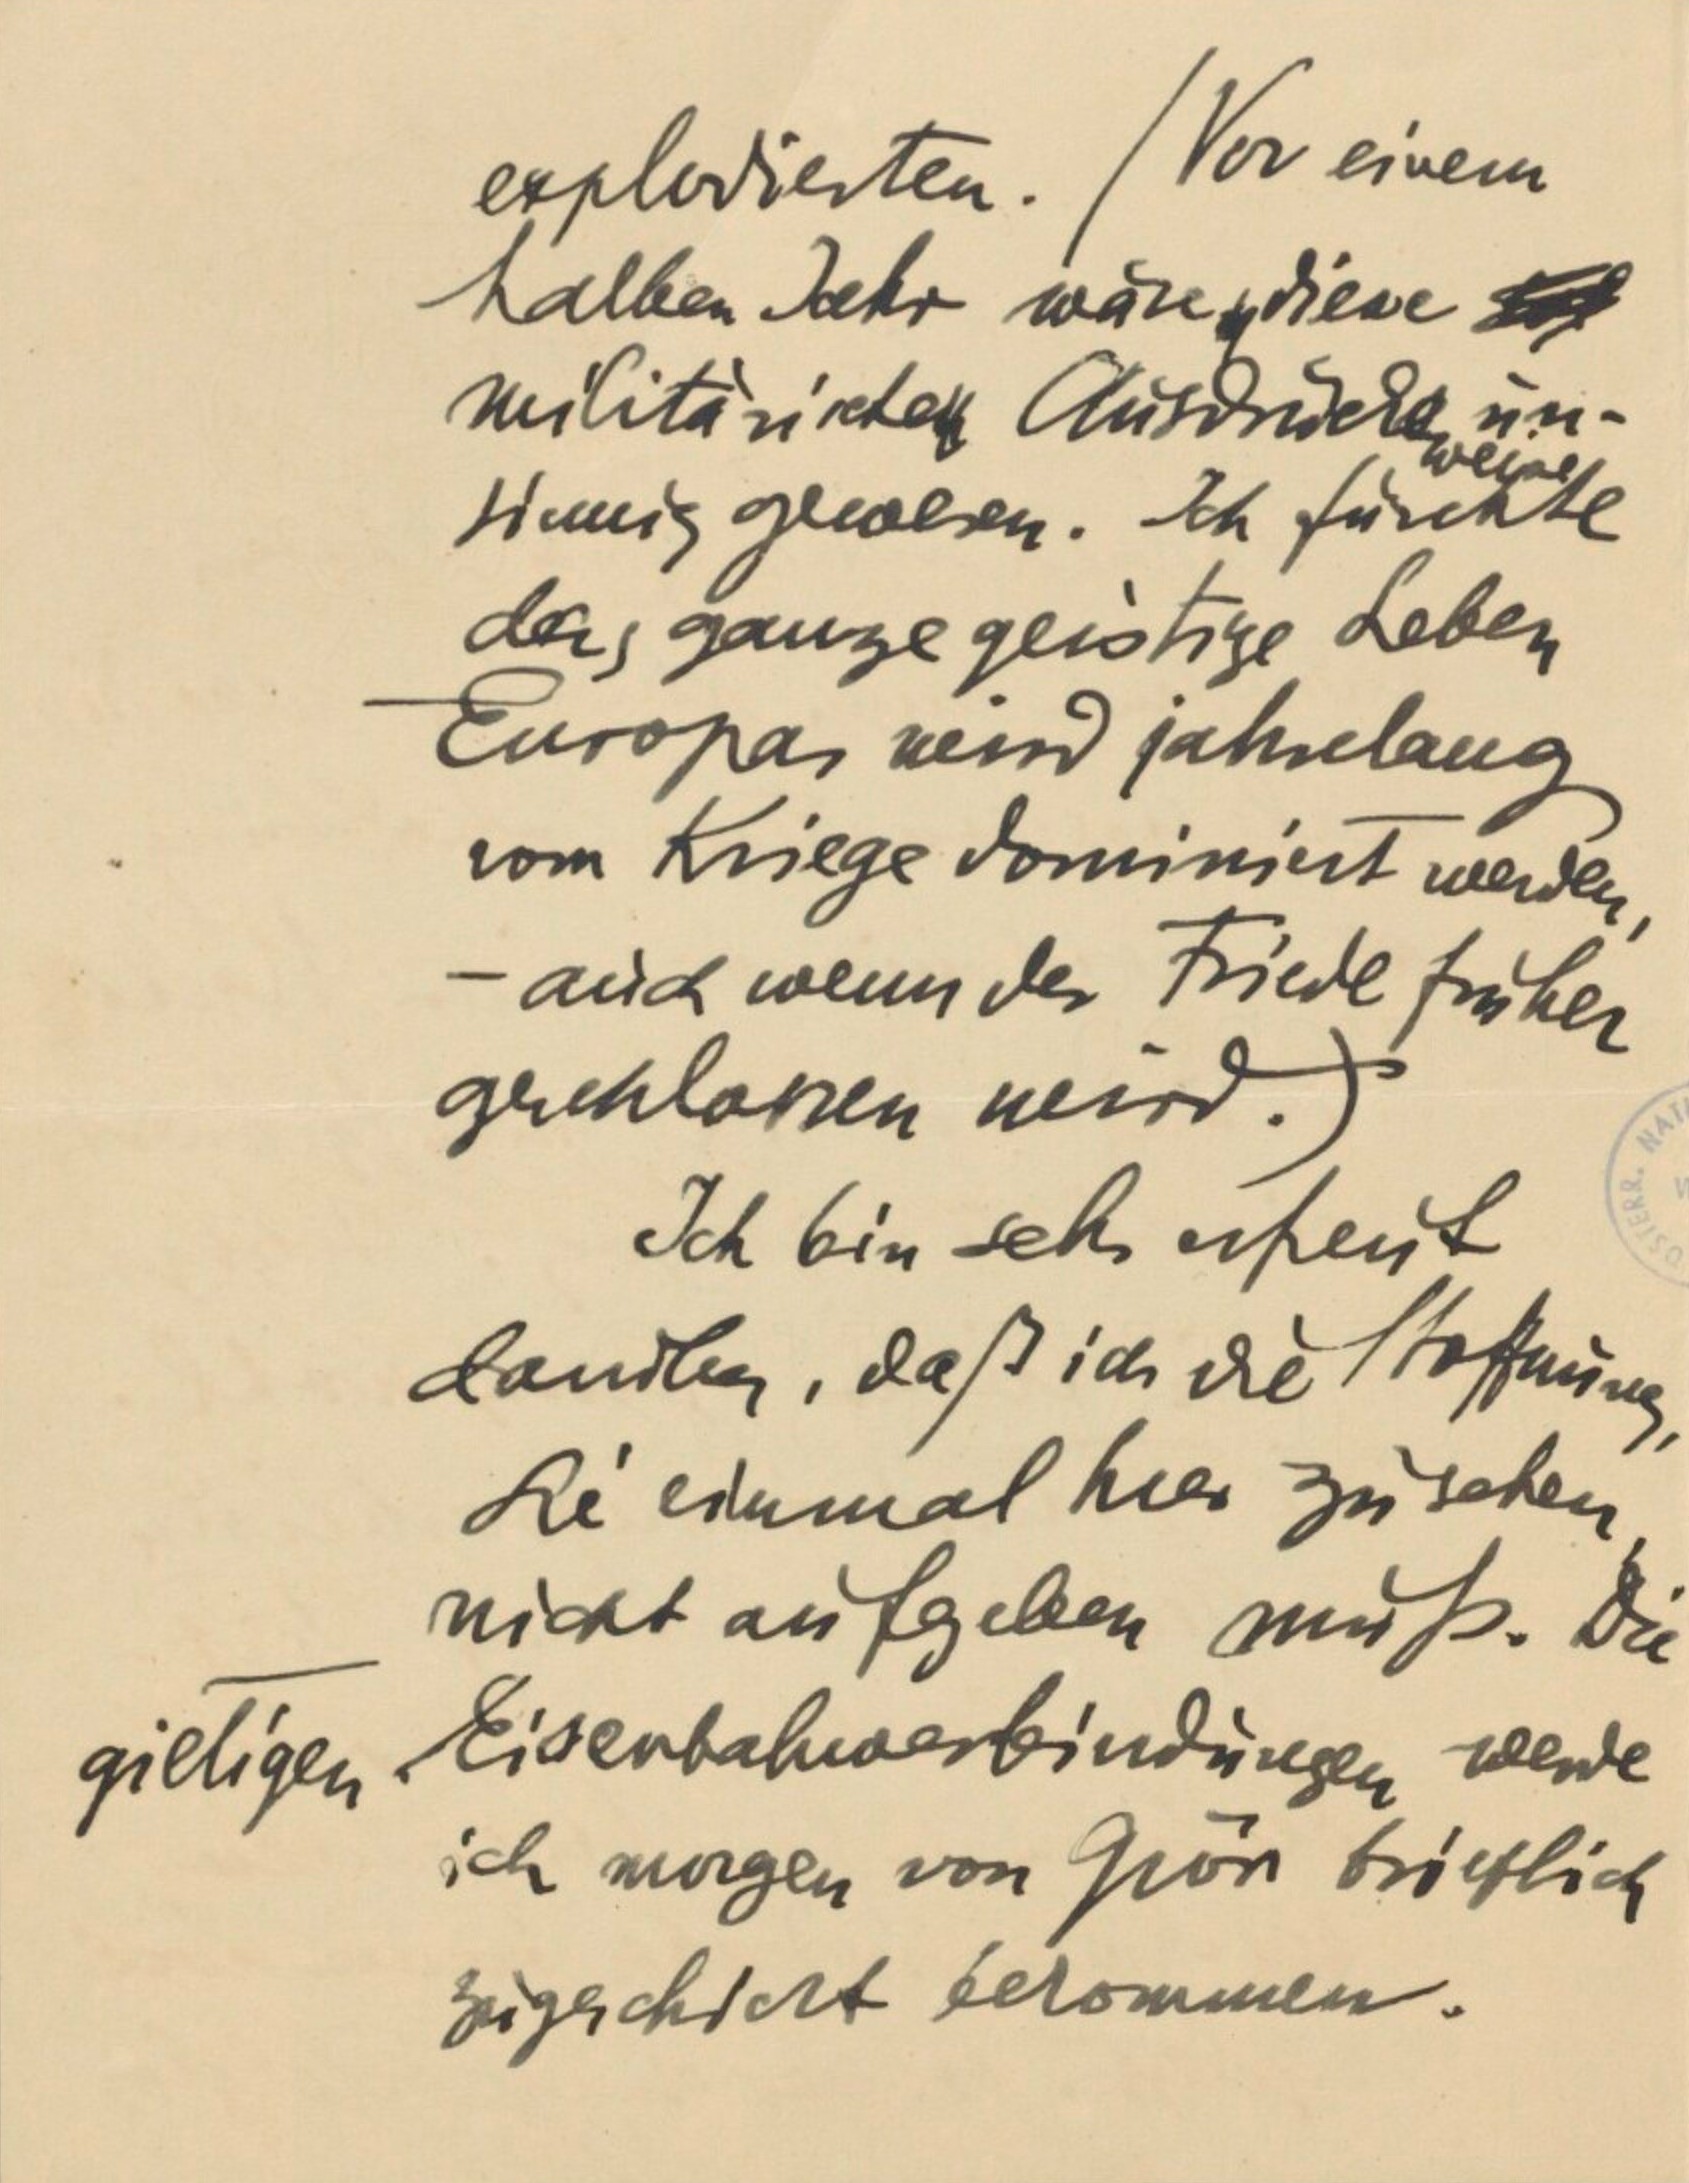 explodierten. (Vor einem
halben Jahr wäre diese
militärische Ausdrucks un-
weise
sinnig gewesen. Ich fürchte
das ganze geistige Leben
Europas wird jahrelang
vom Kriege dominiert werden,
– auch wenn der Friede früher
geschlossen wird.)
Ich bin sehr erfreut
darüber, daß ich die Hoffnung,
Sie einmal hier zu sehen,
nicht aufgeben muß. Die
giltigen Eisenbahnverbindungen werde
ich morgen von Györ brieflich
zugeschickt bekommen.
ÖSTERR. NATI